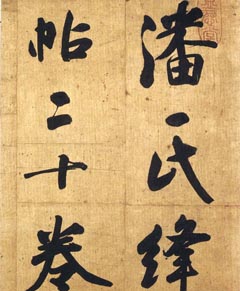 潘氏絳
帖二十卷